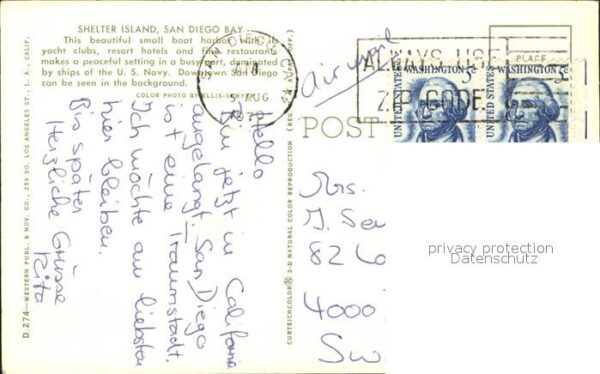 SHELTER ISLAND, SAN DIEGO BAY
This beautiful small boat harbor with its
yacht clubs, resort hotels and fine restaurants
makes a peaceful setting in a busy port, dominated
by ships of the U. S. Navy. Downtown San Diego
can be seen in the background.
COLOR PHOTO BY ELLIS-
D.274—WESTERN PUBL. & NOV. CO., 259 SO. LOS ANGELES ST., L. A., CALIF.
Hello
Bin jetzt in California
angelangt. San Diego
ist eine Traumstadt.
Ich möchte am liebsten
hier bleiben.
Bis später
Herzliche Grüsse
Rita
CURTEICHCOLOR® 3-D NATURAL COLOR REPRODUCTION
SAN DIEGO
5 AUG
1967
Air mail
ALWAYS USE
ZIP CODE
PLACE
UNITED STATES
WASHINGTON 5c
UNITED STATES
WASHINGTON 5c
POST
Mrs.
J.
826
4000
Sw
privacy protection
Datenschutz